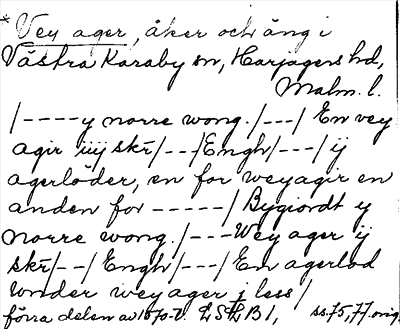 * Vey ager, åker och äng i
Västra Karaby sn, Harjagers hd,
Malm. l.
/----y norre wong. /---/ En vey
agir iiij skr̄/---/Engh/---/ ij
agerlöder, en for weyagir en
anden for -----/ Bygiordt y
norre wong. /---Wey ager ij
skr̄/--/Engh/---/ En agerlod
wnder weyager j less/
förra delen av 1570-t. LSH B 1, ss. 75, 77. orig.